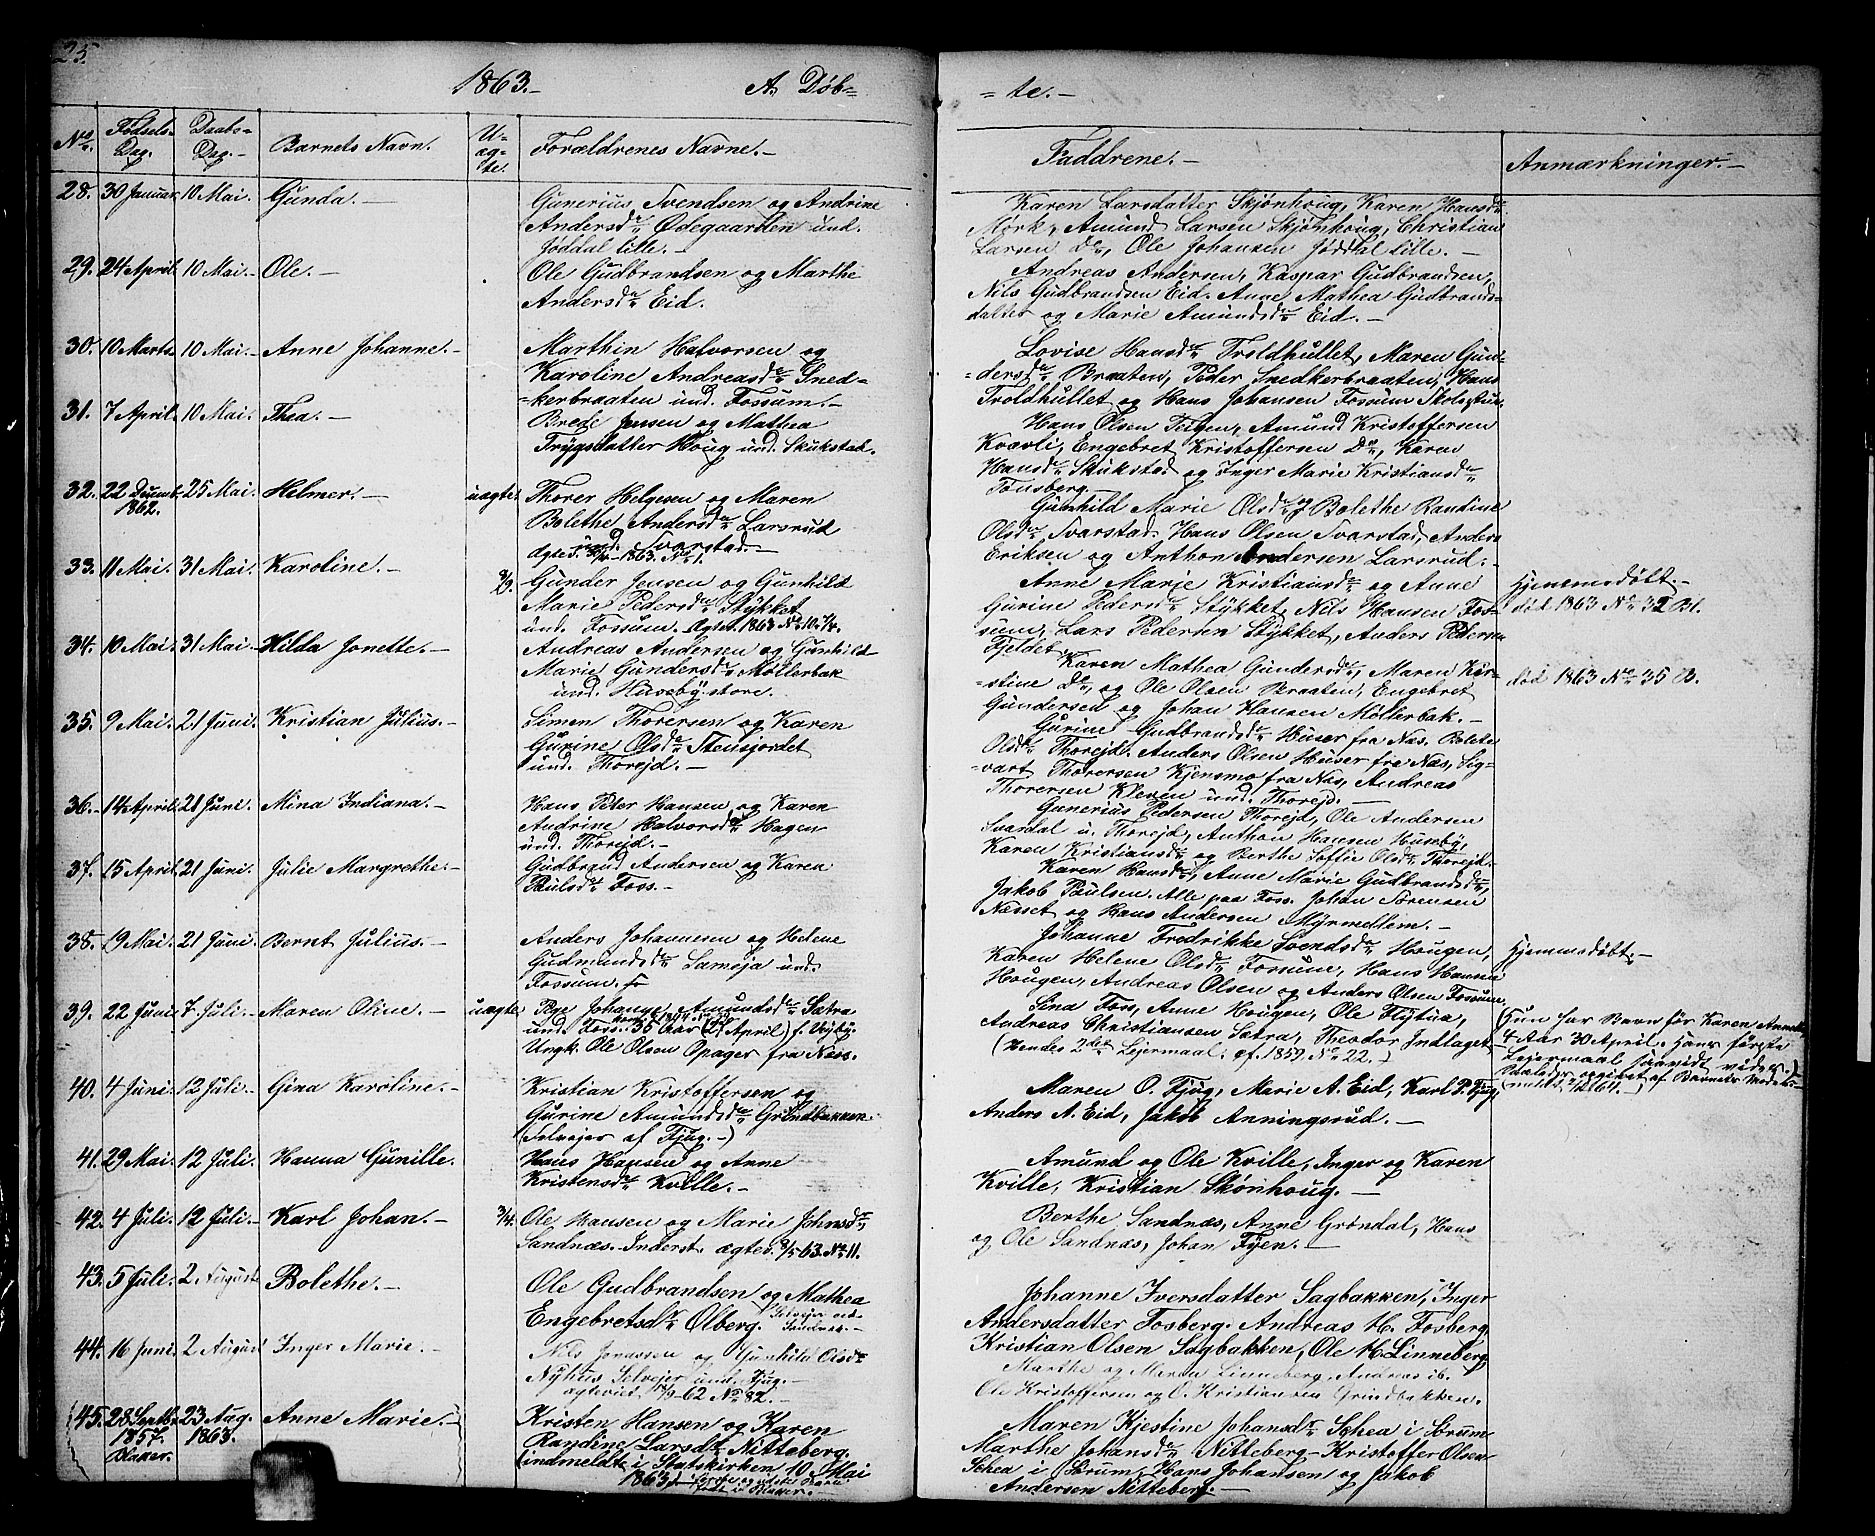 25.
1863.- A. Døb=
= te.-
No. Fødsels-Dag. Daabs-Dag.- Barnets Navn. U=æg=te. Forældrenes Navne.- Faddrene.- Anmærkninger.-
28. 30 Januar. 10 Mai. Gunda.-
Gunerius Svendsen og Andrine
Andersdr Ødegaarden und.
Joddal lille.-
Karen Larsdatter Skjønhoug, Karen Hansdr
Mørk, Amund Larsen Skjønhoug, Christian
Larsen Do, Ole Johansen Joddal lille.-
29. 24 April. 10 Mai.- Ole.-
Ole Gudbrandsen og Marthe
Andersdr Eid.
Andreas Andersen, Kaspar Gudbrandsen,
Nils Gudbrandsen Eid. Anne Mathea Gudbrands=
datter og Marie Amundsdr Eid.-
30. 10 Marts. 10 Mai.- Anne Johanne.-
Marthin Halvorsen og
Karoline Andreasdr Sned=
=kerbraaten und. Fossum.-
Lovise Hansdr Troldhullet, Maren Gun=
=dersdr Braaten, Peder Snedkerbraaten, Hans
Troldhullet og Hans Johansen Fossum
31. 7 April. 10 Mai. Thea.-
Brede Jensen og Mathea
Trygsdatter Houg und. Skukstad.
Hans Olsen Teigen, Amund Kristoffersen
Kvævli, Engebret Kristoffersen Do, Karen
Hansdr Skukstad og Inger Marie Kristiansdr
Tonsberg.
32. 22 Decemb. 1862. 25 Mai. Helmer.- uægte.
Thorer Helgesen og Maren
Bolethe Andersdr Larsrud
und. Svarstad.-
1863. No 1.
Gunhild Marie Olsdr og Bolethe Randine
Olsdr Svarstad. Hans Olsen Svarstad, Anders
Eriksen og Anthon Andersen Larsrud.-
33. 11 Mai. 31 Mai. Karoline.-
Gunder Jensen og Gunhild
Marie Pedersdr Stykket
und. Fossum. Ægtev. 1863 No 10.
Anne Marie Kristiansdr og Anne
Gurine Pedersdr Stykket, Nils Hansen Fos=
sum, Lars Pedersen Stykket, Anders Pedersen
Fjeldet.
Hjemmedøbt.-
død 1863 No 32 B.
34. 10 Mai. 31 Mai.- Hilda Jonette.-
Andreas Andersen og Gunhild
Marie Gundersdr Møllerbak
und. Huseby store.
Karen Mathea Gundersdr, Maren Kir=
=stine Do og Ole Olsen Braaten, Engebret
Gundersen og Johan Hansen Møllerbak.-
død 1863 No 35 B.
35. 9 Mai. 21 Juni. Kristian Julius.-
Simen Thorersen og Karen
Gurine Olsdr Stensjordet
und. Thorejd.-
Gurine Gudbrandsdr Huser fra Næs. Bolette
Olsdr Thorejd. Anders Olsen Huser fra Næs, Sig=
=vart Thorersen Kjensmo fra Næs, Andreas
Thorersen Kleven und. Thorejd.-
36.- 14 April. 21 Juni. Mina Indiana.-
Hans Peter Hansen og Karen
Andrine Halvorsdr Hagen
und. Thorejd.-
Gunerius Pedersen Thorejd, Ole Andersen
Svardal u. Thorejd, Anthon Hansen Huseby,
Karen Kristiansdr og Berthe Sofie Olsdr Thorejd.-
37. 15 April. 21 Juni. Julie Margrethe.-
Gudbrand Andersen og Karen
Paulsdr Foss.-
Karen Hansdr, Anne Marie Gudbrandsdr,
Jakob Paulsen. Alle paa Foss. Johan Sørensen
Næsset og Hans Andersen Myrmellem.-
38. 19 Mai. 21 Juni. Bernt Julius.-
Anders Johannesen og Helene
Gudmundsdr Sameja und.
Fossum.
Johanne Fredrikke Svendsdr Hougen,
Karen Helene Olsdr Fossum, Hans Hansen
Hougen, Andreas Olsen og Anders Olsen Fossum.
Hjemmedøbt.-
39. 22 Juni. 7 Juli.- Maren Oline.- uægte.
Pige Johanne Amundsdr Sætra
und. Foss. 35 Aar (27 April)
Ungk. Ole Olsen Opager fra Næss.
Sina Foss, Anne Hougen, Ole Flytua,
Andreas Christiansen Sætra, Theodor Indlaget.
(Hendes 2det Lejermaal. cf. 1859 No 22.)
(Hun har Barn før Karen
4 Aar 30 April. Hans første
Lejermaal saavidt vides.-)
opgivet af Barnets Moder
40. 4 Juni. 12 Juli.- Gina Karoline.-
Kristian Kristoffersen og
Gurine Amundsdr Grindbakken.
(Selvejer af Fjug.-)
Maren O. Fjug, Marie A. Eid, Karl P. Fjug,
Anders A. Eid, Jakob Anningsrud.-
41. 29 Mai. 12 Juli. Hanna Gunille.
Hans Hansen og Anne
Kristensdr Kville.-
Amund og Ole Kville, Inger og Karen
Kville, Kristian Skønhoug.-
42. 4 Juli. 12 Juli.- Karl Johan.- 3/4.
Ole Hansen og Marie Johnsdr
Sandnæs. Inderst. ægtev. 3/5 63. No 11.
Berthe Sandnæs, Anne Grøndal, Hans
og Ole Sandnæs, Johan Fyen.-
43. 5 Juli. 2 August Bolethe.-
Ole Gudbrandsen og Mathea
Engebretsdr Ølberg. Selvejer ved Sandnæs.-
Johanne Iversdatter Sagbakken, Inger
Andersdatter Fosberg. Andreas H. Fosberg,
Kristian Olsen Sagbakken, Ole H. Linneberg
44. 16 Juni. 2 August Inger Marie.-
Nils Jonassen og Gunhild Olsdr
Nyhus Selvejer und. Fjug.-
ægteviet 62 No 82.-
Marthe og Maren Linneberg. Andreas ib.
Ole Kristoffersen og O. Kristiansen Grindbakken.
45. 28 Septbr. 1857. Blaker. 23 Aug. 1863. Anne Marie.-
Kristen Hansen og Karen
Randine Larsdr Nitteberg.
(indmeldt i Statskirken 10 Mai
1863)
Maren Kjestine Johansdr Schea i Sørum
Marthe Johansdr Nitteberg- Kristoffer Olsen
Schea i Sørum, Hans Johansen og Jakob
Andersen Nitteberg.-